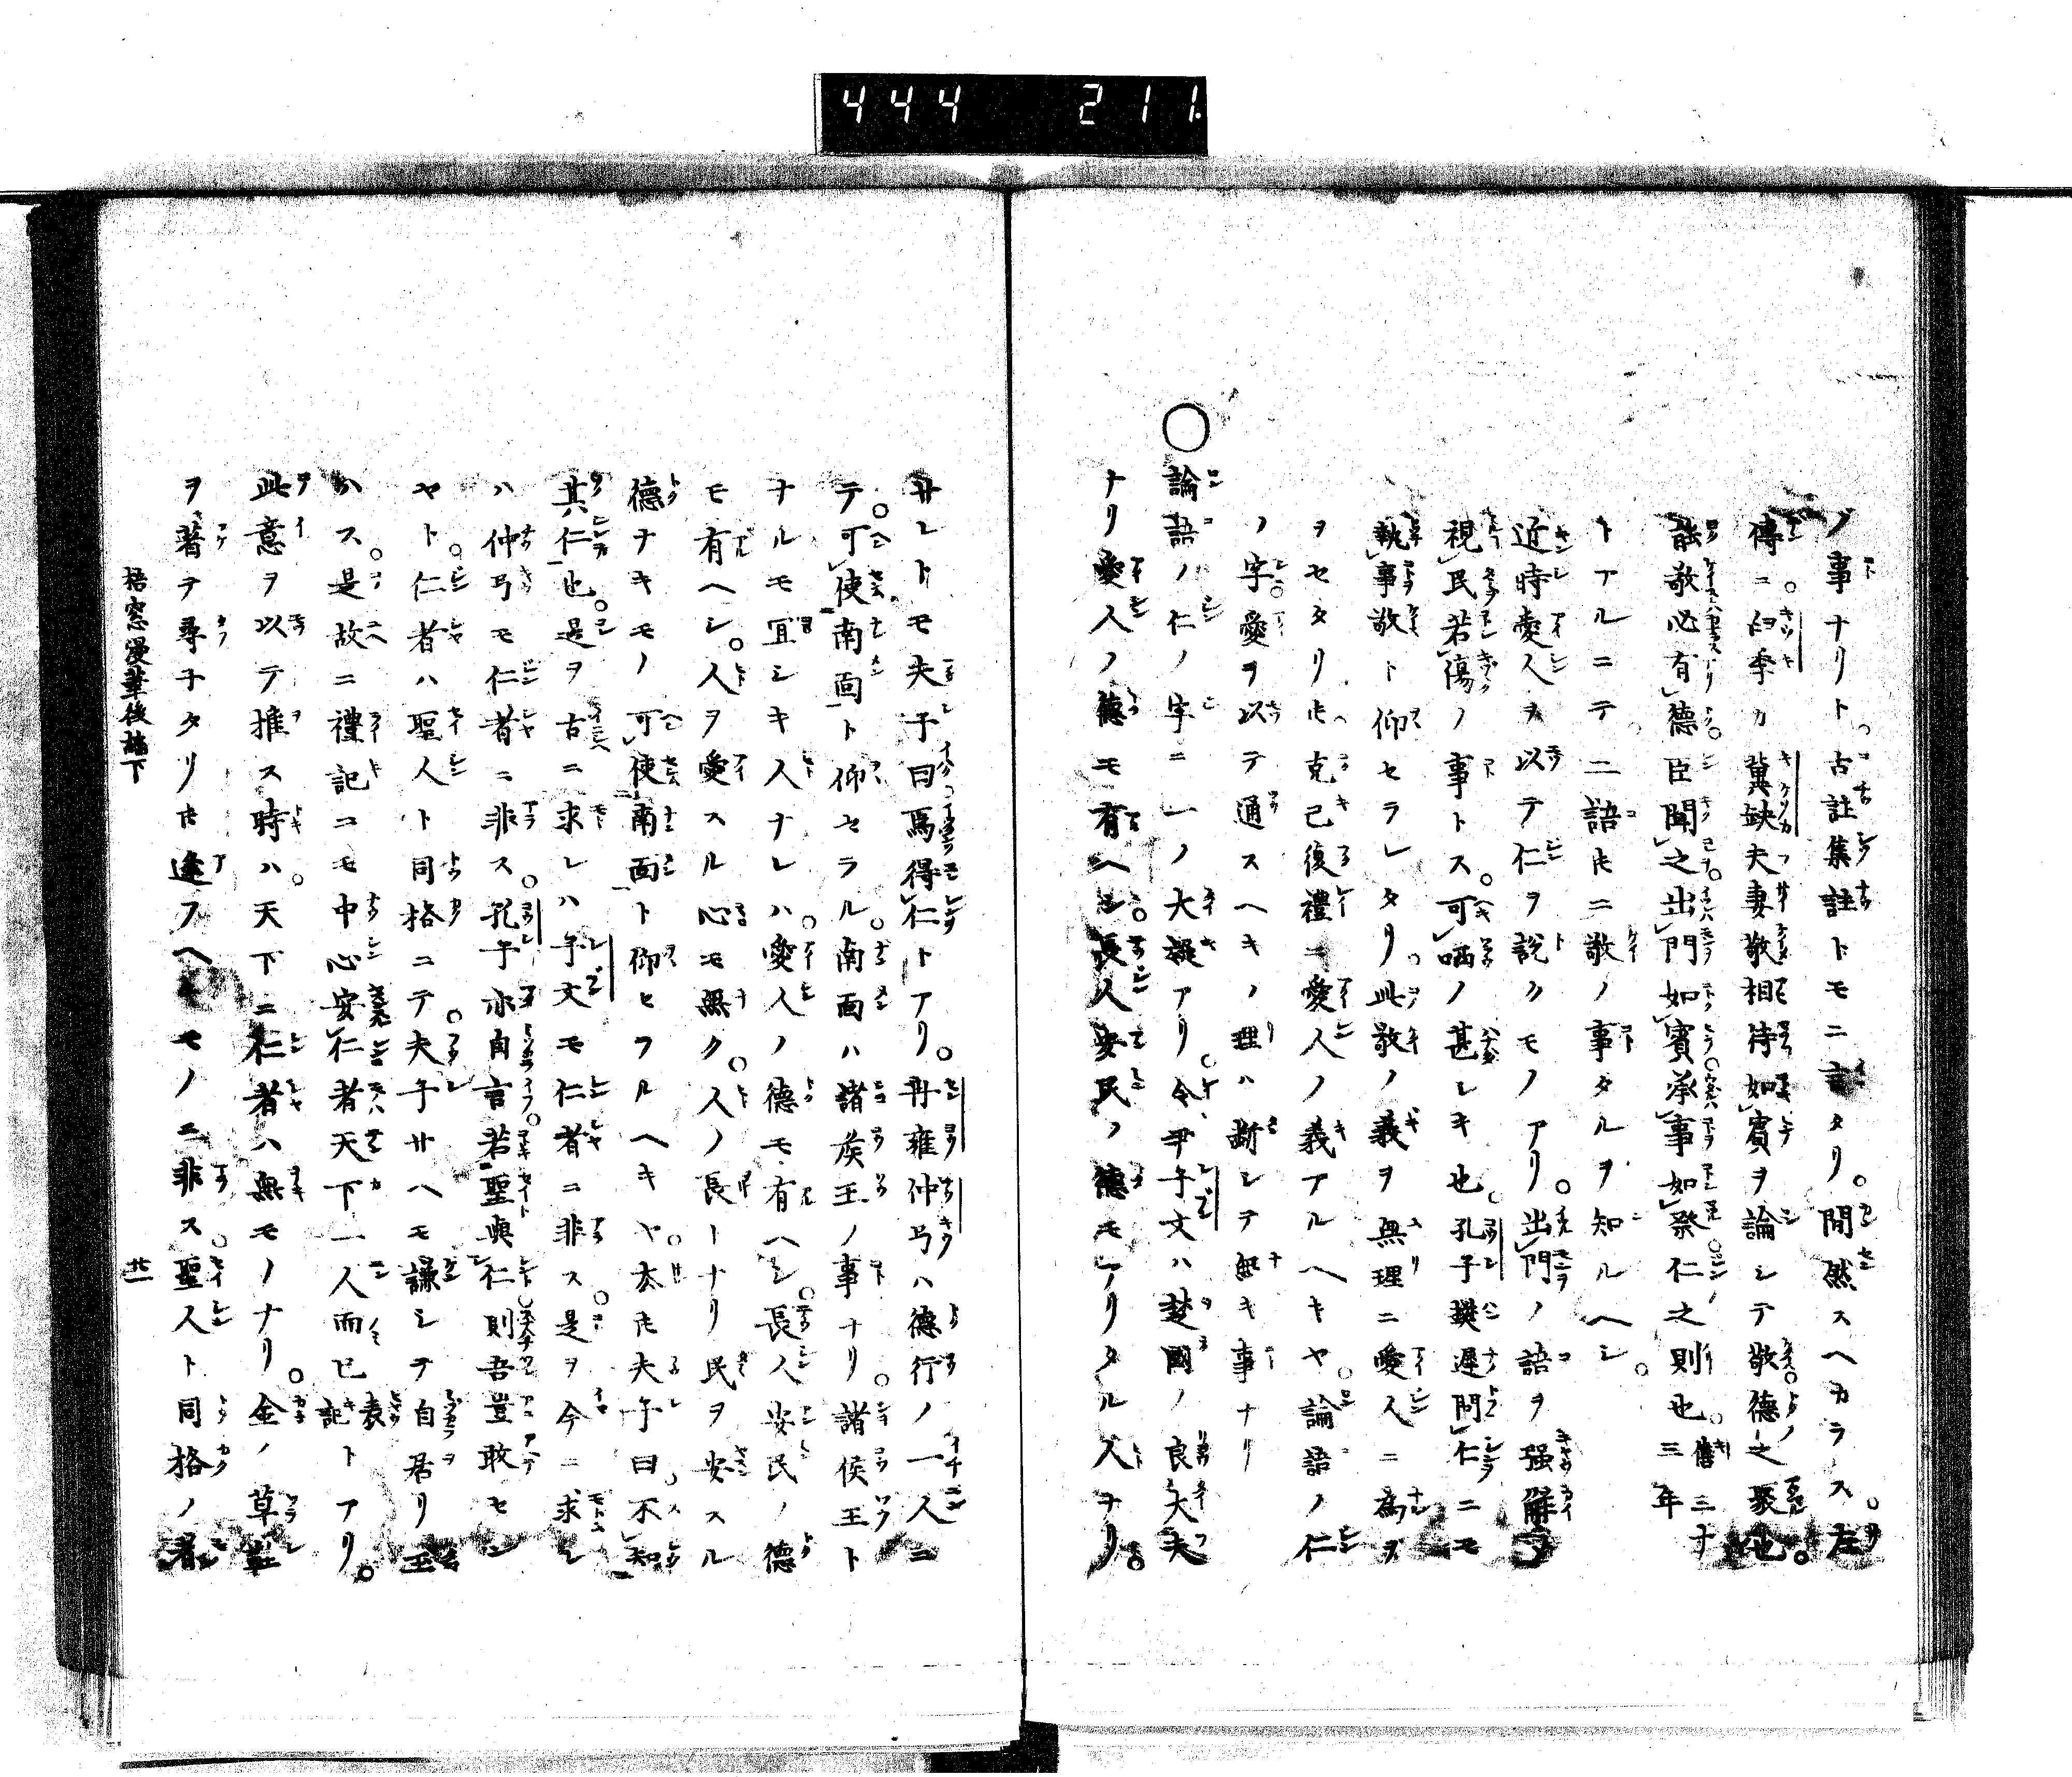 444 211
ノ事ナリト。古註集註トモニ言タリ。間然スヘカラス。左
傳ニ。臼季カ冀缺夫妻敬相待如賓ヲ論シテ敬德之聚也。
能敬必有德。臣聞之出門如賓。承事如祭仁之則也。僖三十三年
トアルニテ。二語トモニ敬ノ事タルヲ知ルヘシ。
近時愛人ヲ以テ仁ヲ說クモノアリ。出門ノ語ヲ强解シテ
視民若傷ノ事トス。可哂ノ甚シキ也。孔子樊遲問仁ニモ
執事敬ト仰セラレタリ。此敬ノ義ヲ無理ニ愛人ニ為ヲ
ヲセタリトモ。克己復禮ニ愛人ノ義アルヘキヤ。論語ノ仁
ノ字。愛ヲ以テ通スヘキノ理ハ斷シテ無キ事ナリ
○論語ノ仁ノ字ニ一ノ大疑アリ。令尹子文ハ楚國ノ良大夫
ナリ愛人ノ德モ有ヘシ。長人安民ノ德モアリタル人ナリ。
サレトモ夫子曰焉得仁トアリ。冉雍仲弓ハ德行ノ一人ニ
テ。可使南面ト仰セラル。南面ハ諸侯王ノ事ナリ。諸侯王ト
ナルモ宜シキ人ナレハ。愛人ノ德モ有ヘシ。長人安民ノ德
モ有ヘシ。人ヲ愛スル心モ無ク。人ノ長トナリ民ヲ安スル
德ナキモノ可使南面ト仰ヒラルヘキヤ。然トモ夫子曰。不知
其仁也。是ヲ古ニ求レハ子文モ仁者ニ非ス。是ヲ今ニ求レ
ハ仲弓モ仁者ニ非ス。孔子亦自言。若聖與仁則吾豈敢セン
ヤト。仁者ハ聖人ト同格ニテ。夫子サヘモ謙シテ自居リ玉
ハス。是故ニ禮記ニモ中心安仁者天下一人而已表記トアリ。
此意ヲ以テ推ス時ハ。天下ニ仁者ハ無モノナリ。金ノ草鞋
ヲ著ヲ尋子タリトモ逢フヘキモノニ非ス。聖人ト同格ノ者
梧窓漫筆後編下
廿一